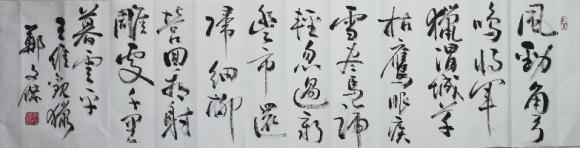 風勁角弓
鳴将軍
獵渭城草
枯鷹眼疾
雪盡馬蹄
輕忽過新
豐市還
歸細柳
營回看射
雕處千里
暮雲平
王維觀獵
鄭